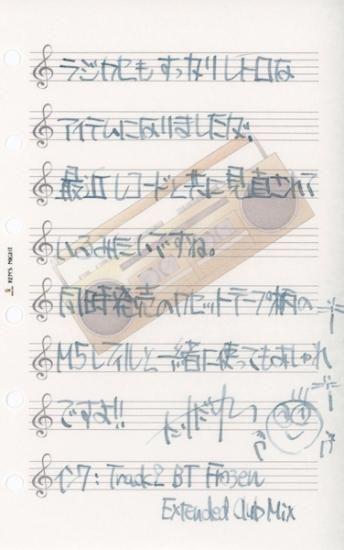 ラジカセもすっかりレトロな
アイテムになりましたな。
最近レコードと共に見直されて
いるみたいですね。
同時発売のカセットテープ柄の
M5レフィルと一緒に使ってもおしゃれ
ですよ!!
インク: Track2 BT Frozen
Extended Club Mix
KEN'S NIGHT